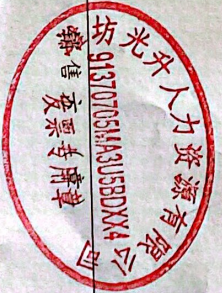 坊光升人力资源有限公司
91370705MA3U5BDXX4
发票专用章